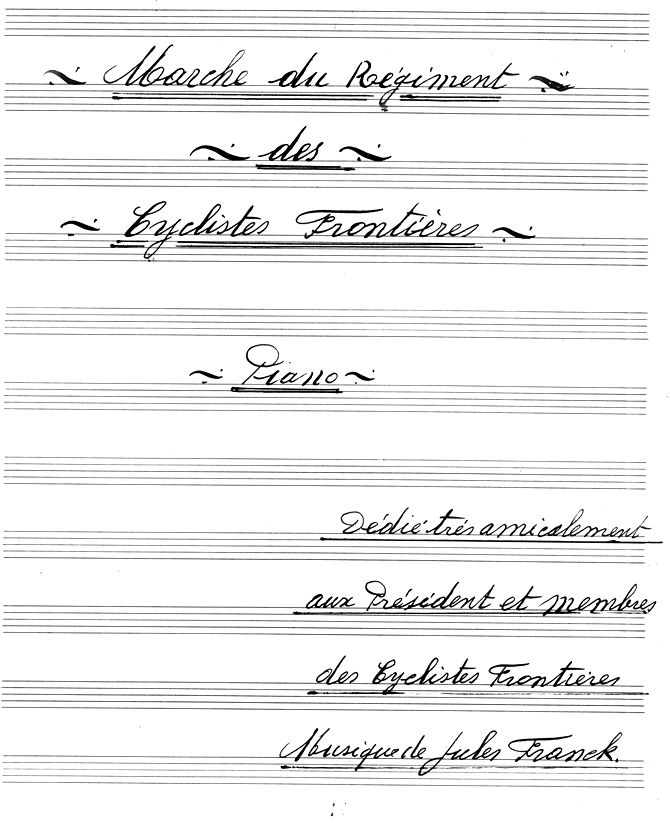 Marche du Régiment
des
Cyclistes Frontières
Piano
Dédié très amicalement
aux Président et membres
des Cyclistes Frontières
Musique de Jules Franck.